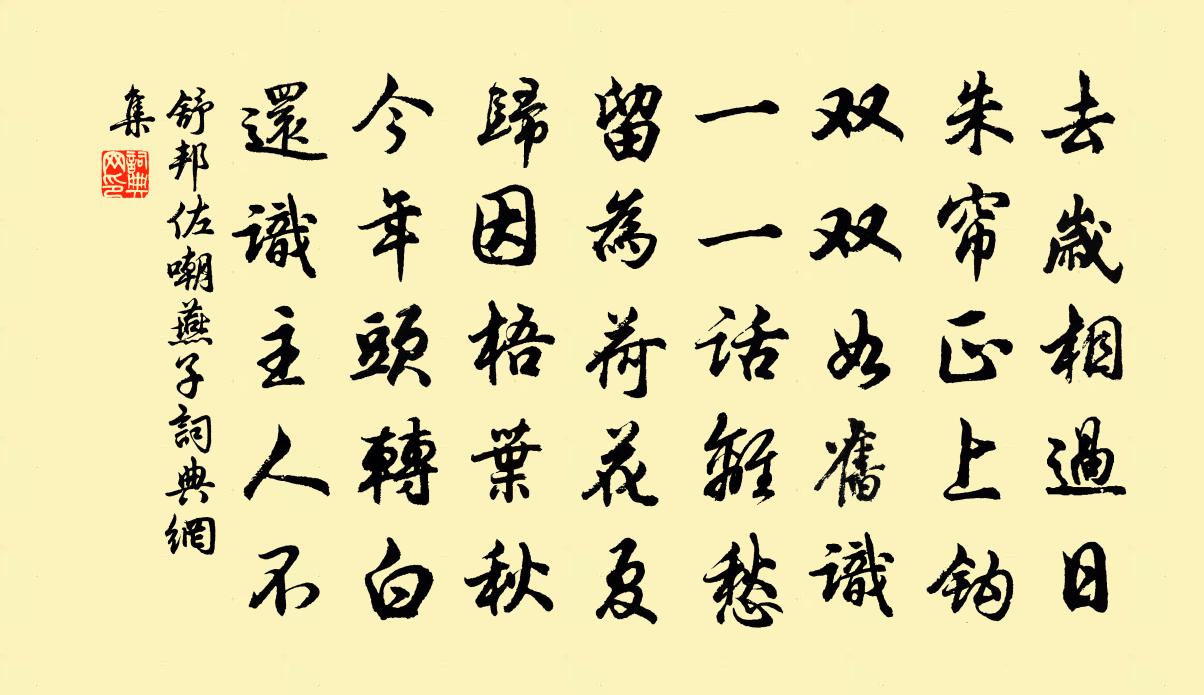 去歲相過日
朱帘正上鈎
双双如舊識
一一話離愁
留為荷花夏
歸因梧葉秋
今年頭轉白
還識主人不
舒邦佐嘲燕子詞典網
集
詞典網印